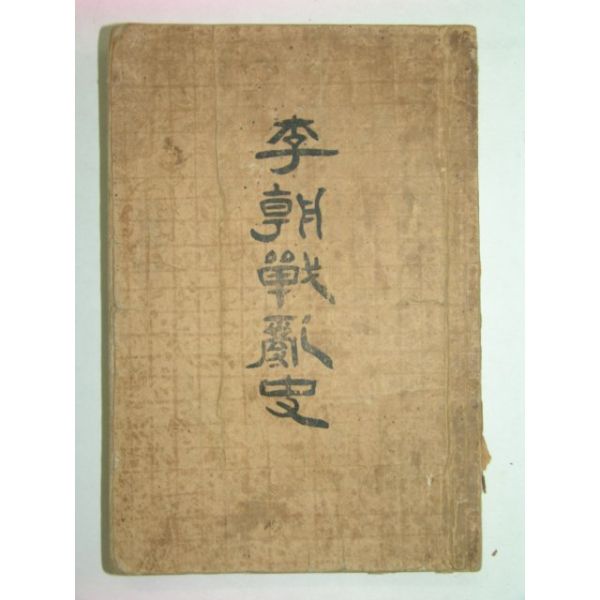 李朝戰亂史